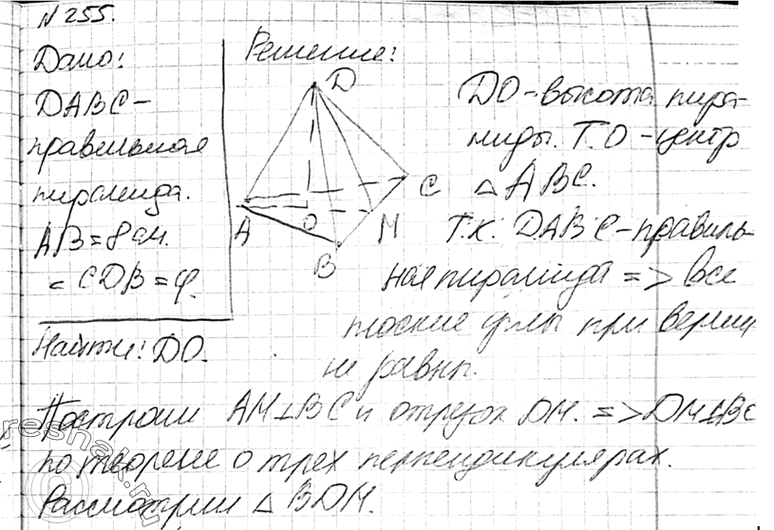 № 255.
Дано:
DABC-
правильная
пирамида.
AB=8 см.
∠ CDB = φ.
Найти: DO.
Решение:
D
A
O
B
M
C
DO-высота пира-
миды. Т.О -центр
△ ABC.
Т.к. DABC-правиль-
ная пирамида => все
плоские углы при верши
не равны.
Построим AM⊥BC и отрезок DM. => DM⊥BC
по теореме о трех перпендикулярах.
Рассмотрим △ BDM.
reshak.ru